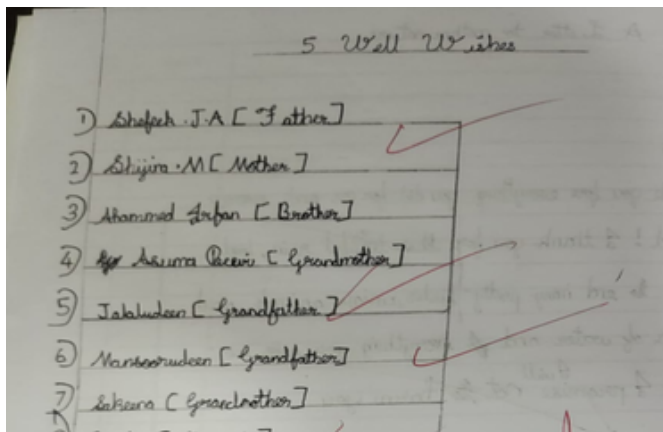 5 Well Wishes
1) Shefeek . J . A [ Father ]
2) Shijina . M [ Mother ]
3) Ahammed Irfan [ Brother ]
4) Asuma Beevi [ Grandmother ]
5) Jalaludeen [ Grandfather ]
6) Mansoorudeen [ Grandfather ]
7) Sakeena [ Grandmother ]